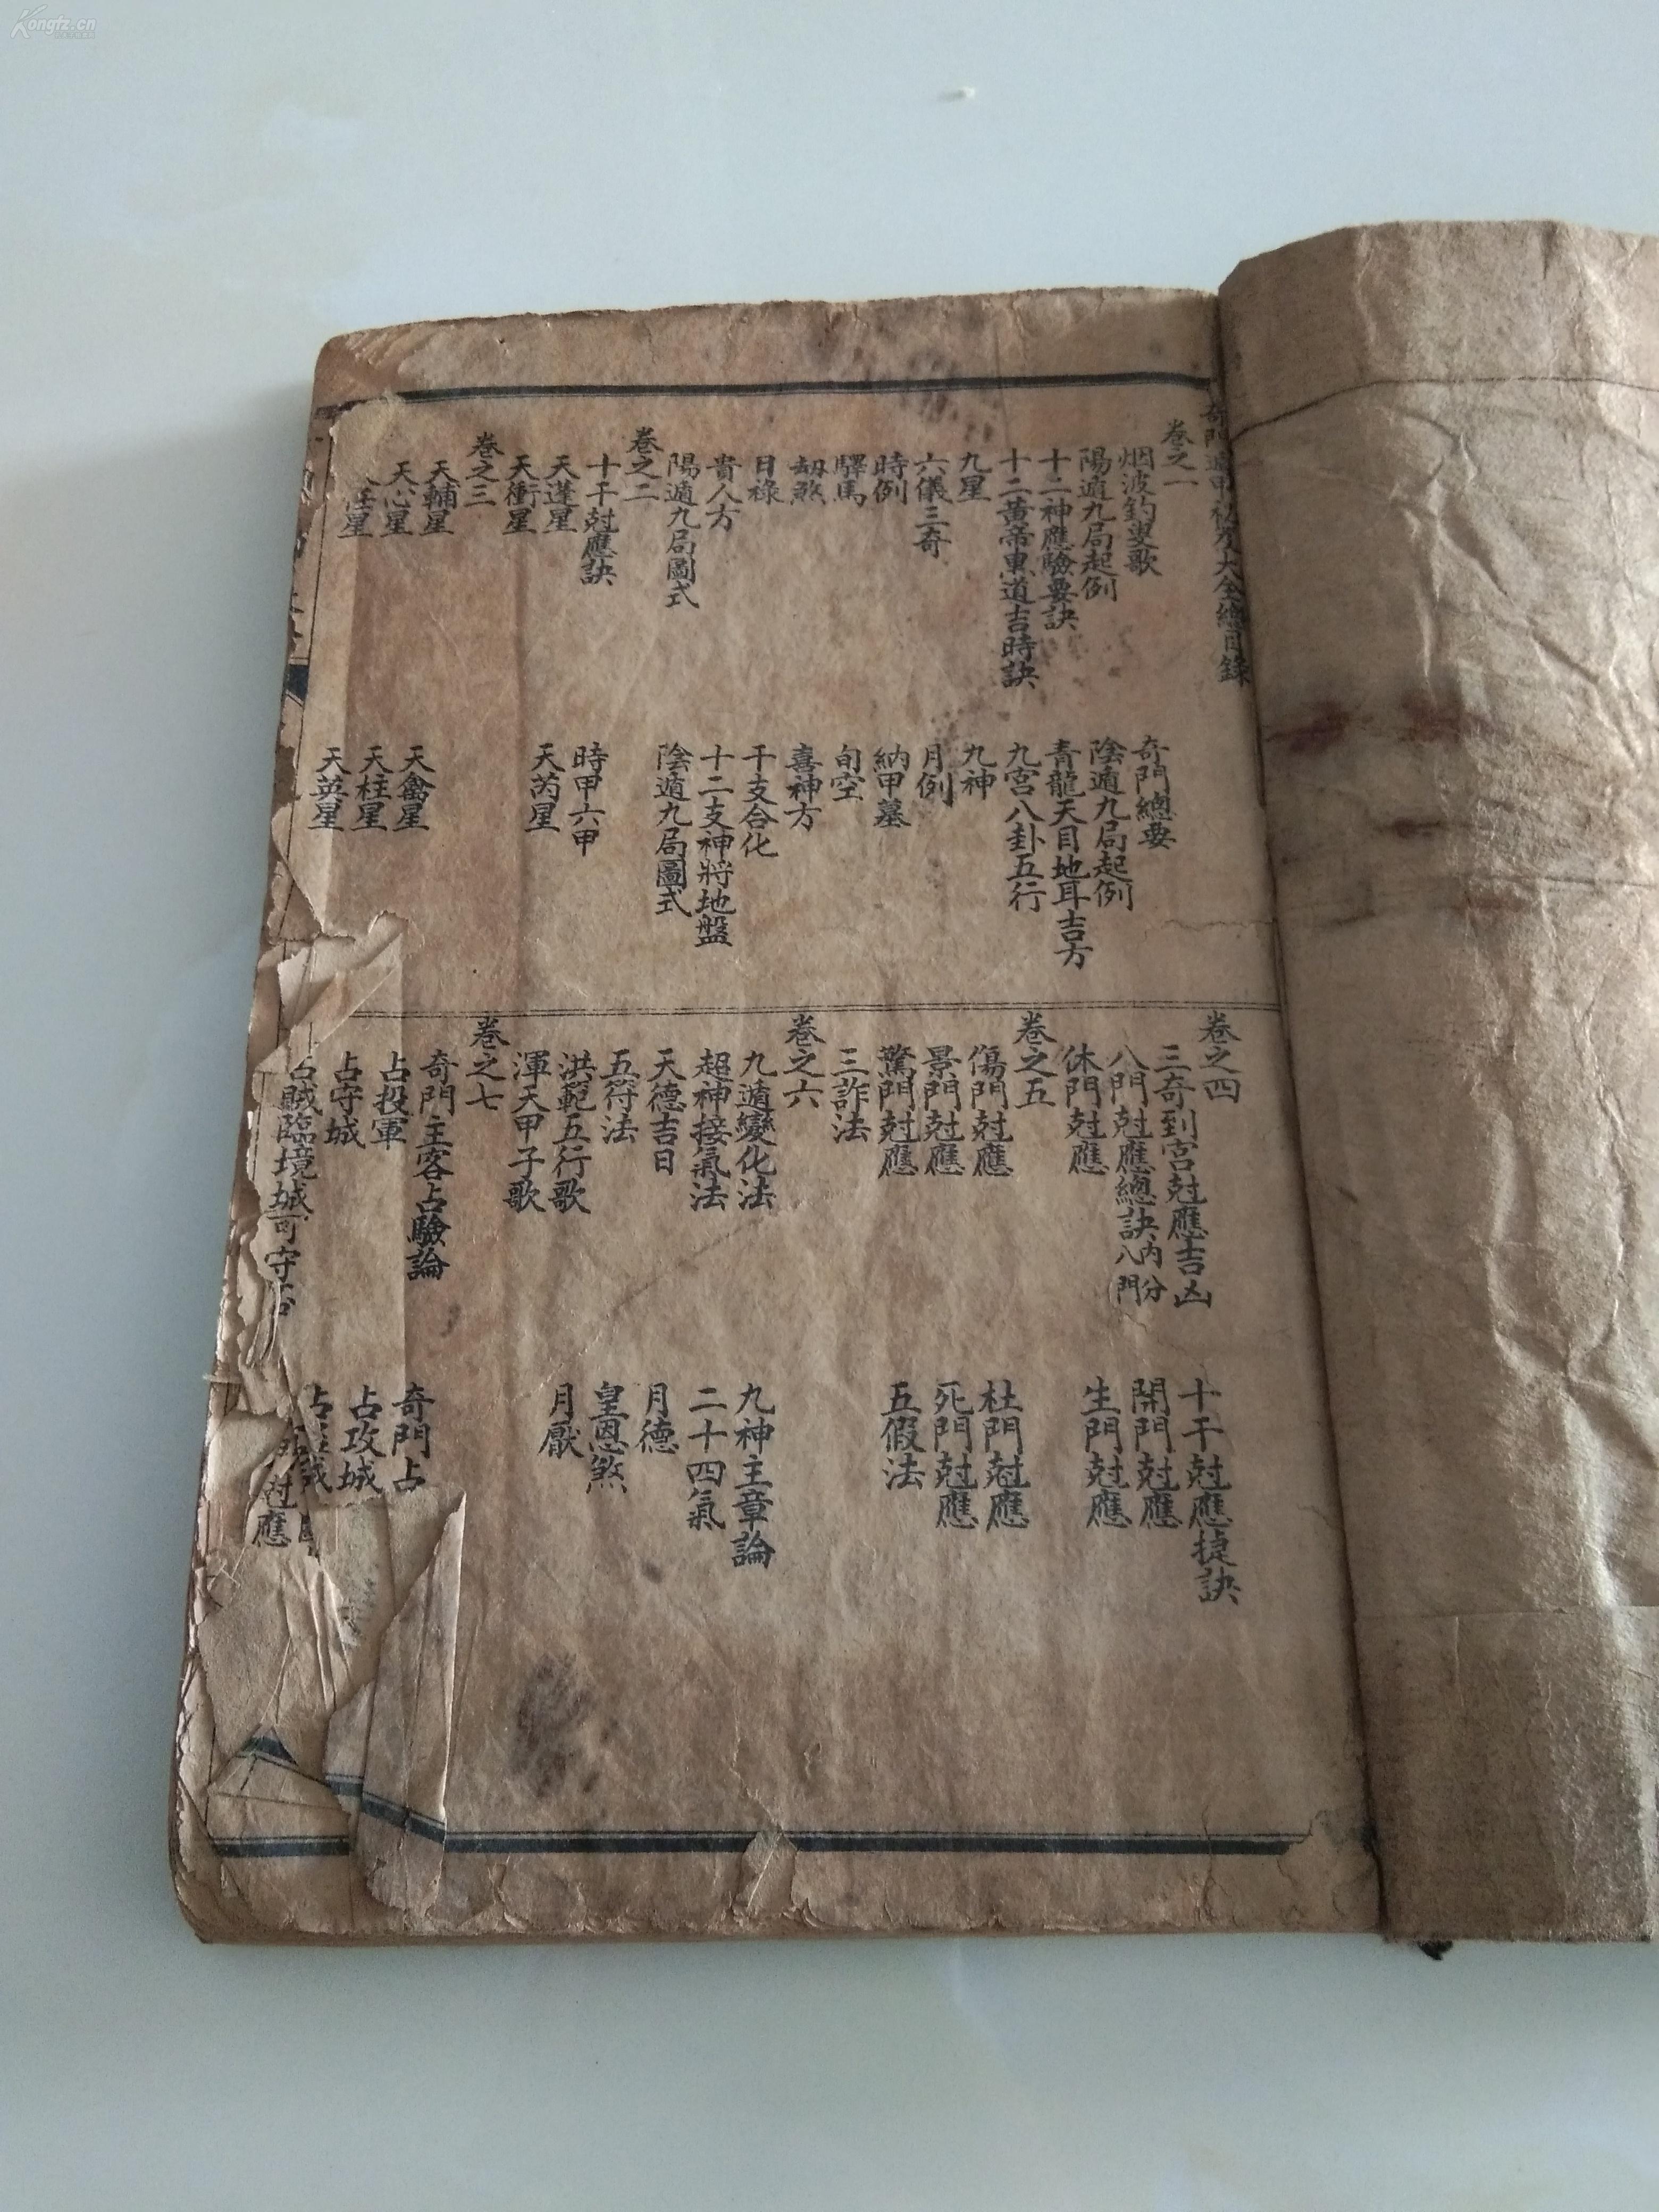 Kongfz.cn
奇門遁甲秘笈大全總目錄
卷之一
烟波釣叟歌
奇門總要
陽遁九局起例
陰遁九局起例
十二神應驗要訣
青龍天目地耳吉方
十二黃帝黑道吉時訣
九宮八卦五行
九星
九神
六儀三奇
月例
時例
納甲墓
驛馬
旬空
劫煞
喜神方
日祿
干支合化
貴人方
十二支神將地盤
陽遁九局圖式
陰遁九局圖式
卷之二
十干尅應訣
時甲六甲
天蓬星
天芮星
天衝星
卷之三
天輔星
天禽星
天心星
天柱星
任星
天英星
卷之四
三奇到宮尅應吉凶
十干尅應捷訣
八門尅應總訣內分八門
開門尅應
休門尅應
生門尅應
卷之五
傷門尅應
杜門尅應
景門尅應
死門尅應
驚門尅應
五假法
三詐法
卷之六
九遁變化法
九神主章論
超神接氣法
二十四氣
天德吉日
月德
五符法
皇恩煞
洪範五行歌
月厭
渾天甲子歌
卷之七
奇門主客占驗論
奇門占
占投軍
占攻城
占守城
占賊臨境城可守否
尅應